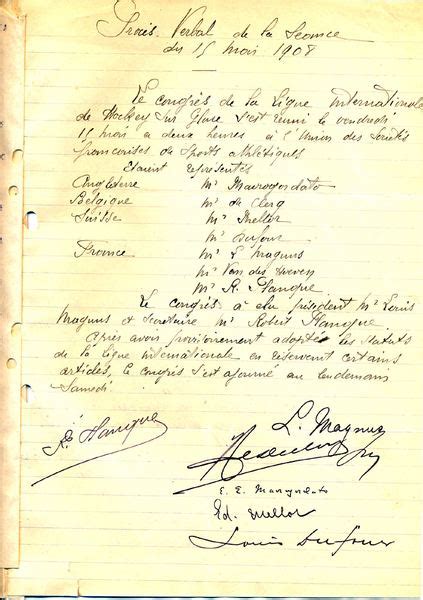 Procès Verbal de la Seance
du 15 mai 1908
Le congrès de la Ligue Internationale
de Hockey sur Glace s'est réuni le vendredi
15 mai a deux heures a l'Union des Sociétés
françaises de Sports Athlétiques
Etaient représentés
Angleterre Mr Mavrogordato
Belgique Mr de Clerq
Suisse Mr Mellor
Mr Dufour
France Mr L Magnus
Mr Van der Hoeven
Mr R. Planque
Le congrès a élu président Mr Louis
Magnus et secrétaire Mr Robert Planque
Après avoir provisoirement adopté les statuts
de la ligue internationale en réservant certains
articles, le congrès s'est ajourné au lendemain
Samedi
R. Planque
L. Magnus
E. E. Mavrogordato
Ed. Mellor
Louis Dufour